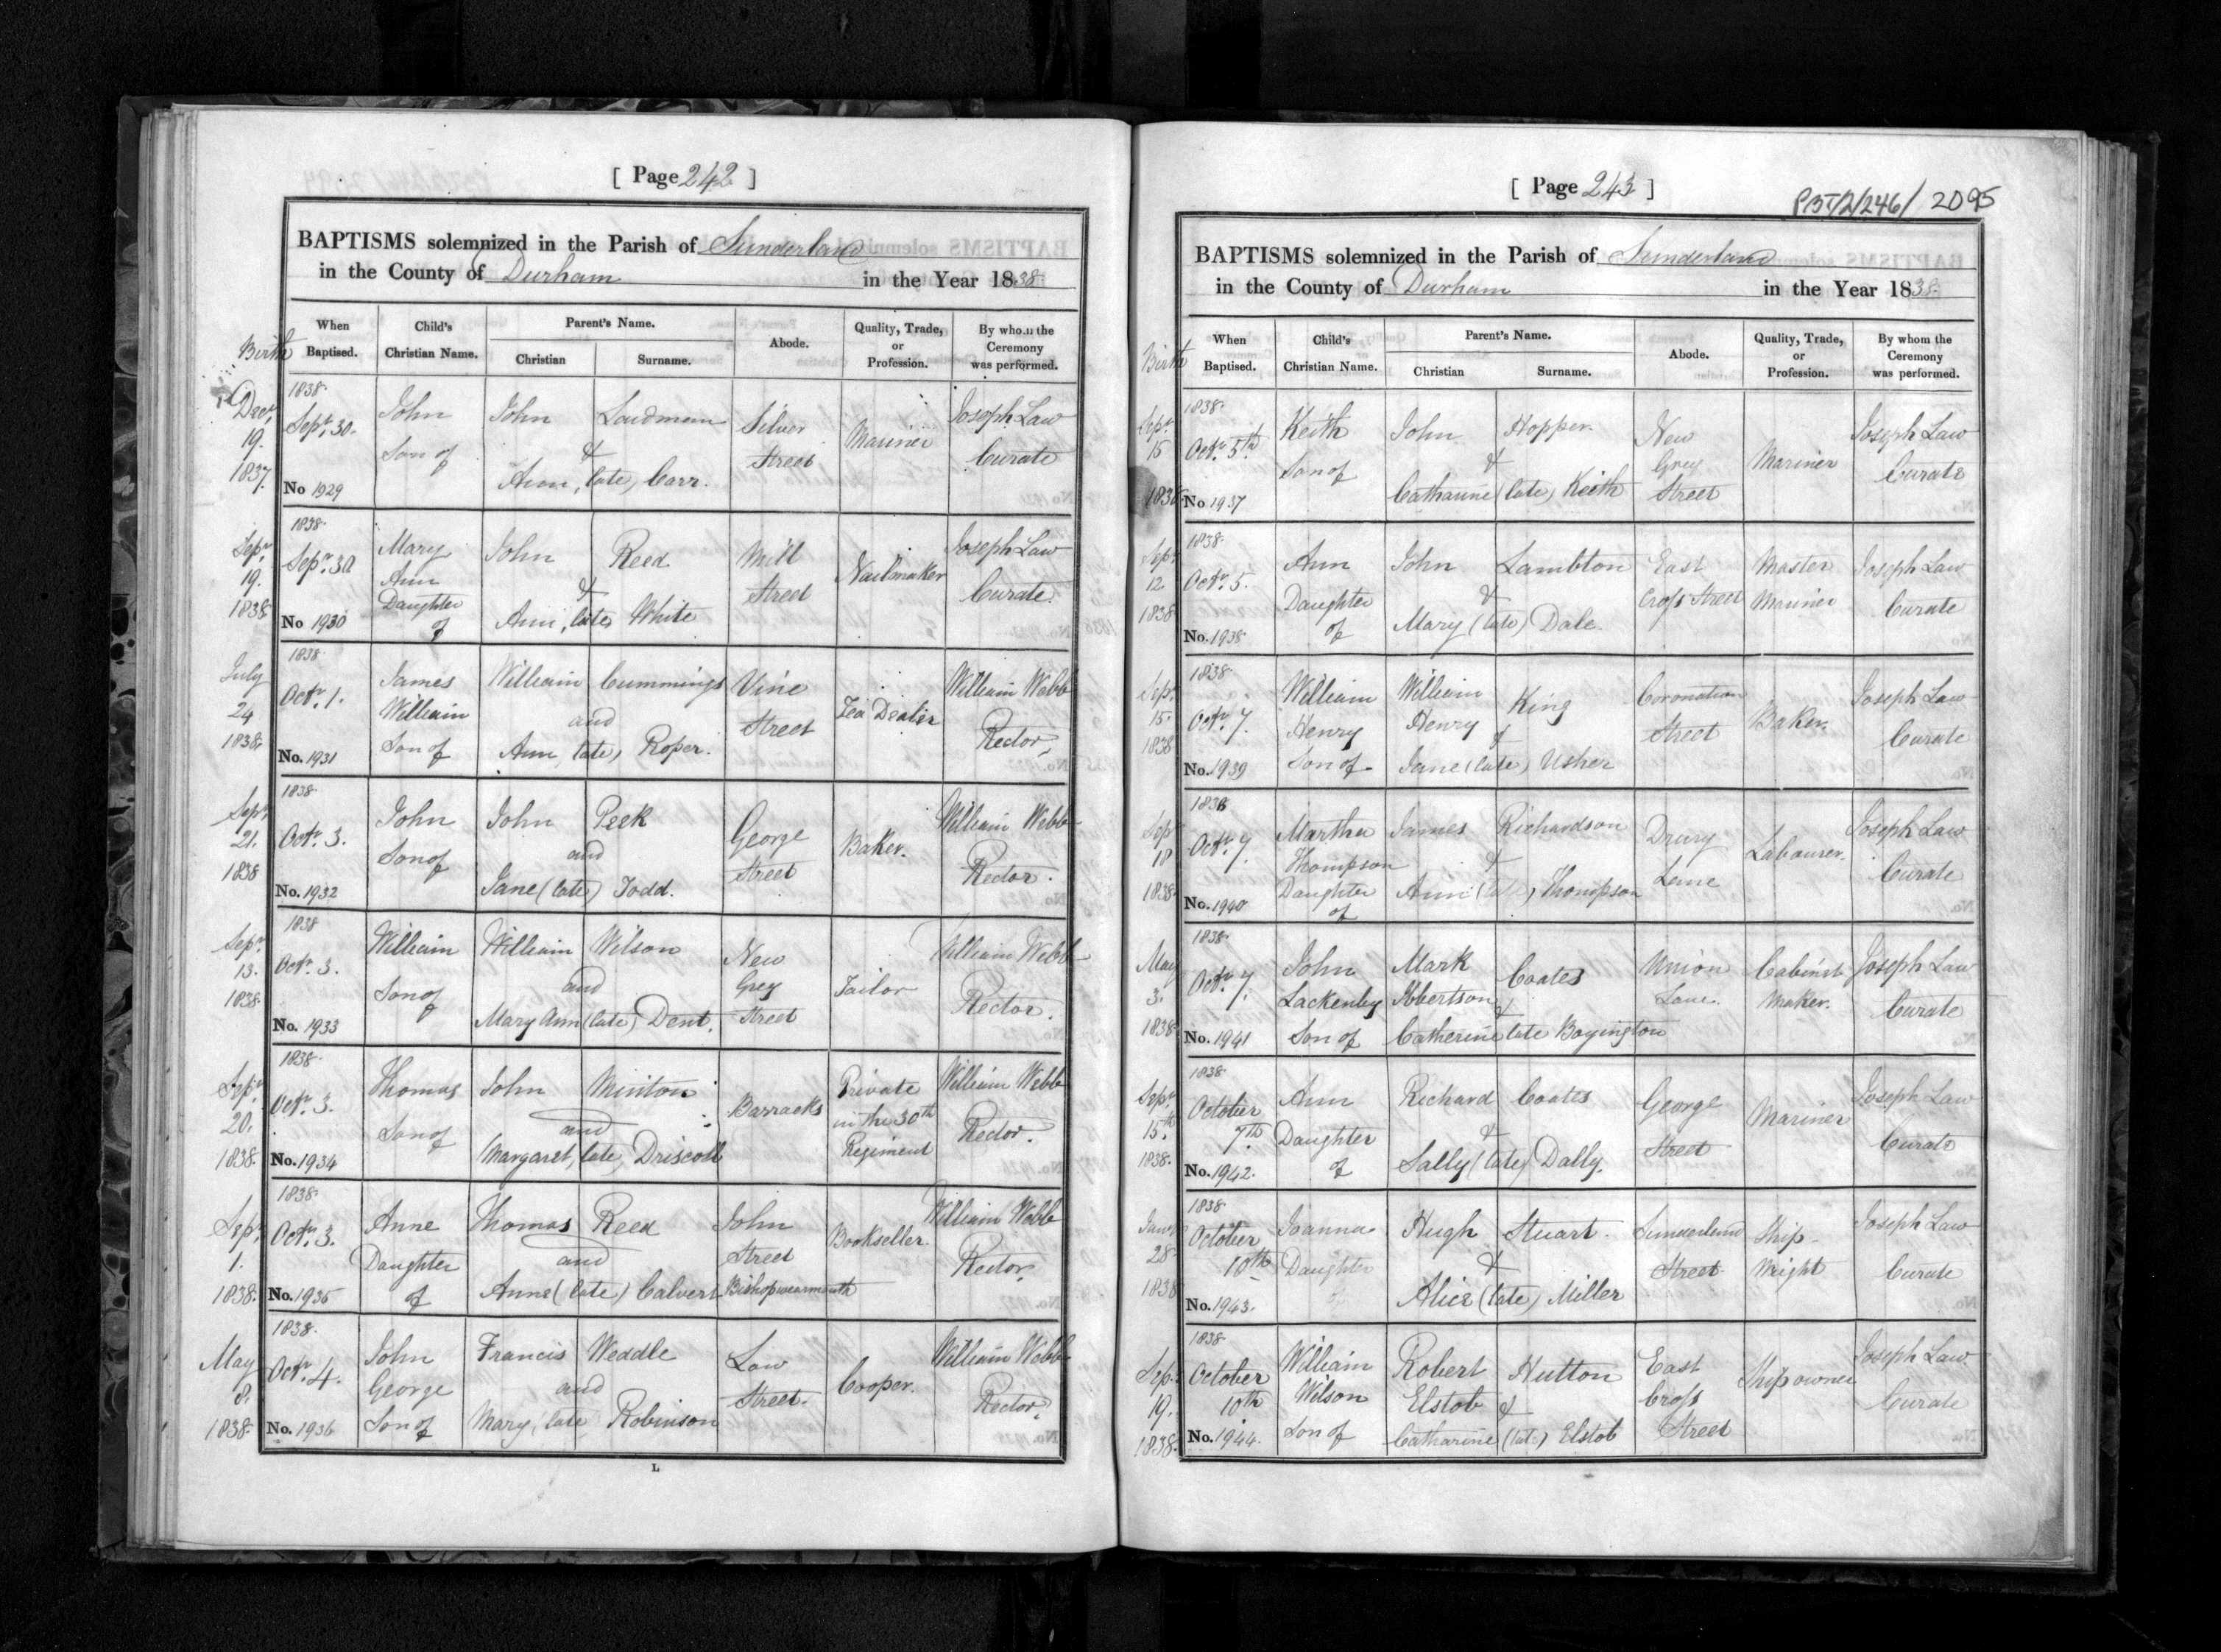 [ Page 242 ]
BAPTISMS solemnized in the Parish of Sunderland
in the County of Durham in the Year 1838.
Birth
When Baptised.
Child's Christian Name.
Parent's Name.
Christian
Surname.
Abode.
Quality, Trade, or Profession.
By whom the Ceremony was performed.
Decr. 19. 1837.
1838.
Septr. 30.
No 1929
John
Son of
John
&
Ann, (late) Carr.
Silver
Street
Mariner
Joseph Law
Curate
Sepr. 19. 1838
1838.
Sepr. 30.
No 1930
Mary
Ann
Daughter
of
John Reed.
&
Ann, (late) White
Mill
Street
Nailmaker
Joseph Law
Curate.
July 24 1838.
1838
Octr. 1.
No. 1931
James
William
Son of
William Cummings
and
Ann, (late) Roper.
Vine
Street
Tea Dealer
William Webb
Rector.
Sepr. 21. 1838
1838.
Octr. 3.
No. 1932
John
Son of
John Peek
and
Jane (late) Todd.
George
Street
Baker.
William Webb
Rector.
Sepr. 13. 1838.
1838
Octr. 3.
No. 1933
William
Son of
William Wilson
and
Mary Ann (late) Dent.
New
Grey
Street
Tailor
William Webb
Rector.
Sepr. 20. 1838.
1838.
Octr. 3.
No. 1934
Thomas
Son of
John Minton
and
Margaret, (late) Driscoll
Barracks
Private
in the 30th
Regiment
William Webb
Rector.
Sepr. 1. 1838.
1838.
Octr. 3.
No. 1935
Anne
Daughter
of
Thomas Reed
and
Anne (late) Calvert
John
Street
Bishopwearmouth
Bookseller.
William Webb
Rector.
May 8. 1838.
1838.
Octr. 4.
No. 1936
John
George
Son of
Francis Weddle
and
Mary, (late) Robinson
Low
Street.
Cooper.
William Webb
Rector.
L
[ Page 243 ]
2095
BAPTISMS solemnized in the Parish of Sunderland
in the County of Durham in the Year 1838.
Birth
When Baptised.
Child's Christian Name.
Parent's Name.
Christian
Surname.
Abode.
Quality, Trade, or Profession.
By whom the Ceremony was performed.
Sepr. 15 1838
1838.
Octr. 5th
No 1937
Keith
Son of
John Hopper.
&
Catharine (late) Keith
New
Grey
Street
Mariner
Joseph Law
Curate
Sepr. 12 1838
1838.
Octr. 5.
No. 1938.
Ann
Daughter
of
John Lambton
&
Mary (late) Dale.
East
Cross Street
Master
Mariner
Joseph Law
Curate
Sepr. 15. 1838
1838.
Octr. 7.
No. 1939
William
Henry
Son of
William
Henry King
&
Jane (late) Usher
Coronation
Street
Baker.
Joseph Law
Curate
Sepr 18 1838.
1838
Octr. 7.
No. 1940
Martha
Thompson
Daughter
of
James Richardson
&
Ann (late) Thompson
Drury
Lane
Labourer.
Joseph Law
Curate
May 3. 1838
1838.
Octr. 7.
No. 1941
John
Lackenby
Son of
Mark
Ibbertson Coates
&
Catherine late Boyington
Union
Lane.
Cabinet
Maker.
Joseph Law
Curate
Sepr 15th 1838.
1838
October
7th
No. 1942.
Ann
Daughter
of
Richard Coates
&
Sally (late) Dally.
George
Street
Mariner
Joseph Law
Curate
28 1838
1838
October
10th
No. 1943.
Joanna
Daughter
of
Hugh Stuart.
&
Alice (late) Miller
Sunderland
Street
Ship-
Wright
Joseph Law
Curate
Sepr. 19. 1838.
1838
October
10th
No. 1944.
William
Wilson
Son of
Robert Hutton
Elstob &
Catharine (late) Elstob
East
Cross
Street
Ship owner
Joseph Law
Curate